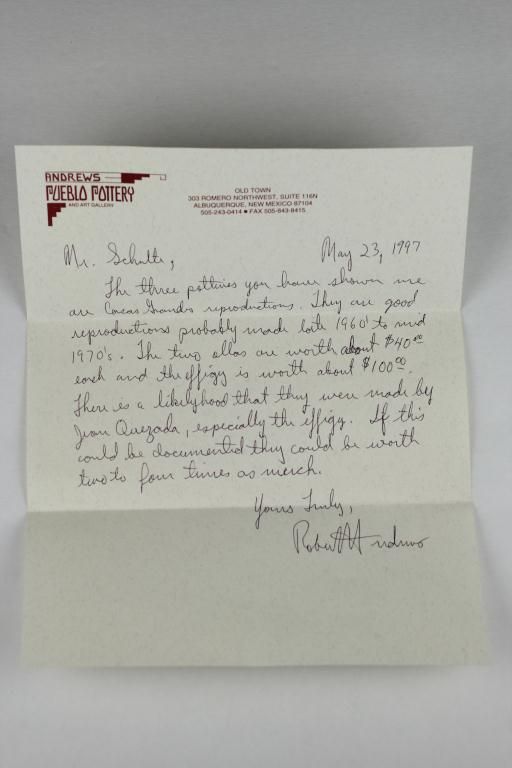 ANDREWS
PUEBLO POTTERY
AND ART GALLERY
OLD TOWN
303 ROMERO NORTHWEST, SUITE 116N
ALBUQUERQUE, NEW MEXICO 87104
505-243-0414 ■ FAX 505-843-8415
May 23, 1997
Mr. Schultz,
The three potteries you have shown me
are Casas Grandes reproductions. They are good
reproductions probably made late 1960' to mid
1970's. The two ollas are worth about $40.00
each and the effigy is worth about $100.00.
There is a likelyhood that they were made by
Juan Quezada, especially the effigy. If this
could be documented they could be worth
two to four times as much.
Yours Truly,
Robert Andrews